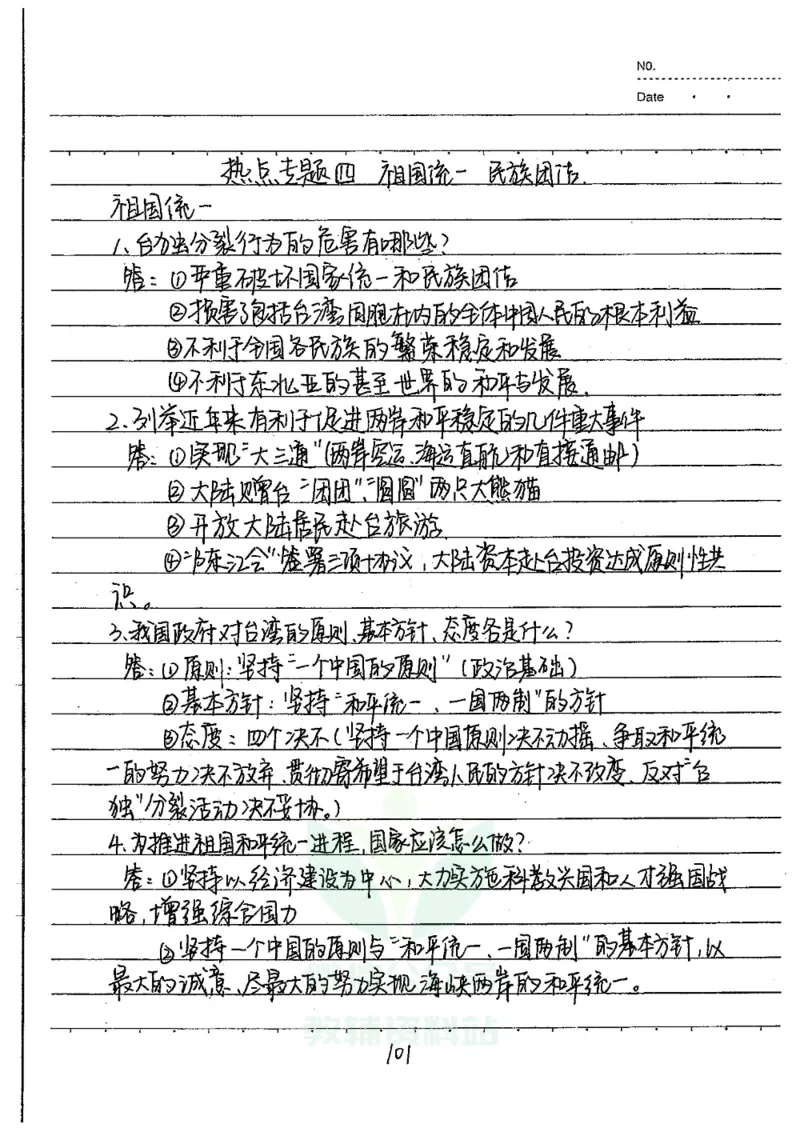 NO.
Date
热点专题四 祖国统一 民族团结.
祖国统一
1、台独分裂行为的危害有哪些?
答：①严重破坏国家统一和民族团结
②损害了包括台湾同胞在内的全体中国人民的根本利益
③不利于全国各民族的繁荣稳定和发展
④不利于东北亚的甚至世界的和平与发展.
2、列举近年来有利于促进两岸和平稳定的几件重大事件
答：①实现“大三通”(两岸空运、海运直航和直接通邮)
②大陆赠台“团团”“圆圆”两只大熊猫
③开放大陆居民赴台旅游
④“陈江会”签署三项协议，大陆资本赴台投资达成原则性共
识。
3、我国政府对台湾的原则、基本方针、态度各是什么?
答：①原则：坚持“一个中国的原则”(政治基础)
②基本方针：坚持“和平统一、一国两制”的方针
③态度：四个决不(坚持一个中国原则决不动摇、争取和平统
一的努力决不放弃、贯彻寄希望于台湾人民的方针决不改变、反对“台
独”分裂活动决不妥协。)
4、为推进祖国和平统一进程，国家应该怎么做?
答：①坚持以经济建设为中心，大力实施科教兴国和人才强国战
略，增强综合国力
②坚持一个中国的原则与“和平统一、一国两制”的基本方针，以
最大的诚意、尽最大的努力实现海峡两岸的和平统一。
教辅资料站
101